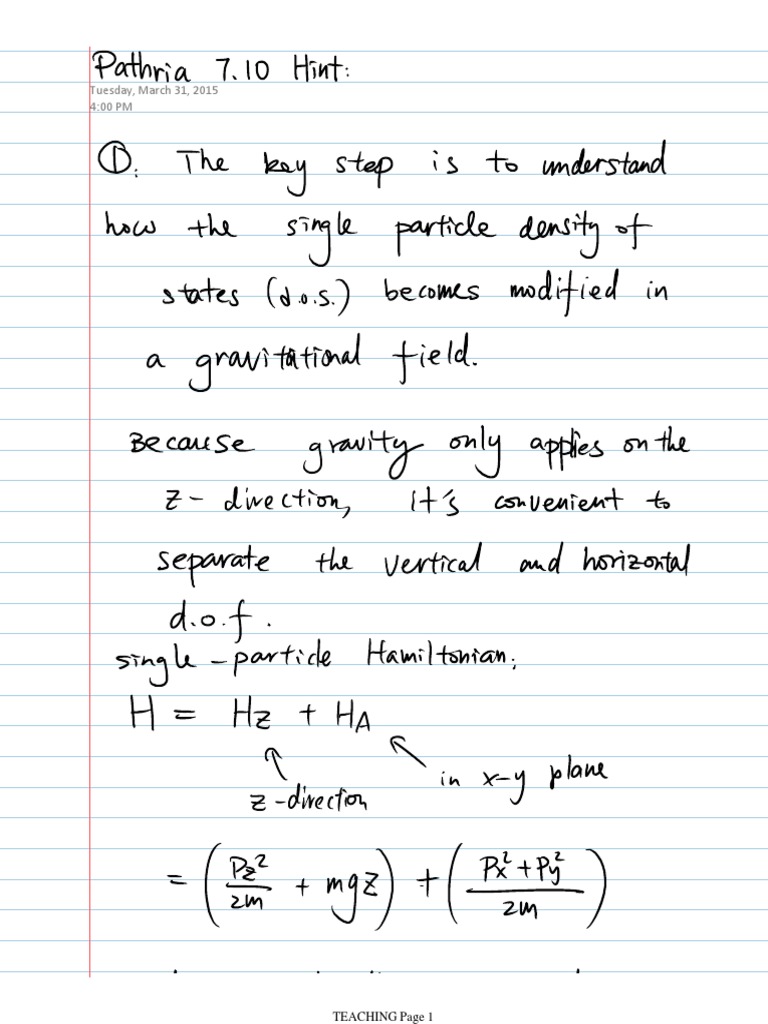 Pathria 7.10 Hint:
Tuesday, March 31, 2015
4:00 PM
①. The key step is to understand
how the single particle density of
states (d.o.s.) becomes modified in
a gravitational field.
Because gravity only applies on the
z-direction, it's convenient to
separate the vertical and horizontal
d.o.f.
single-particle Hamiltonian:
H = Hz + HA
in x-y plane
z-direction
= (Pz²/2m + mgz) + (Px²+Py²/2m)
TEACHING Page 1